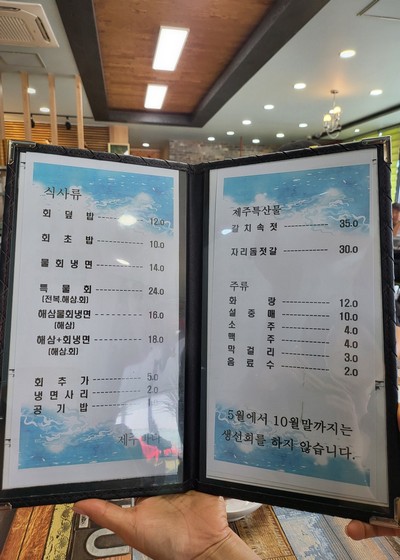 식사류
회덮밥 12.0
회초밥 10.0
물회냉면 14.0
특물회 24.0
(전복.해삼.회)
해삼물회냉면 16.0
(해삼)
해삼+회냉면 18.0
(해삼.회)
회추가 5.0
냉면사리 2.0
공기밥
제주
제주특산물
갈치속젓 35.0
자리돔젓갈 30.0
주류
화랑 12.0
설중매 10.0
소주 4.0
맥주 4.0
막걸리 3.0
음료수 2.0
5월에서 10월말까지는
생선회를 하지 않습니다.